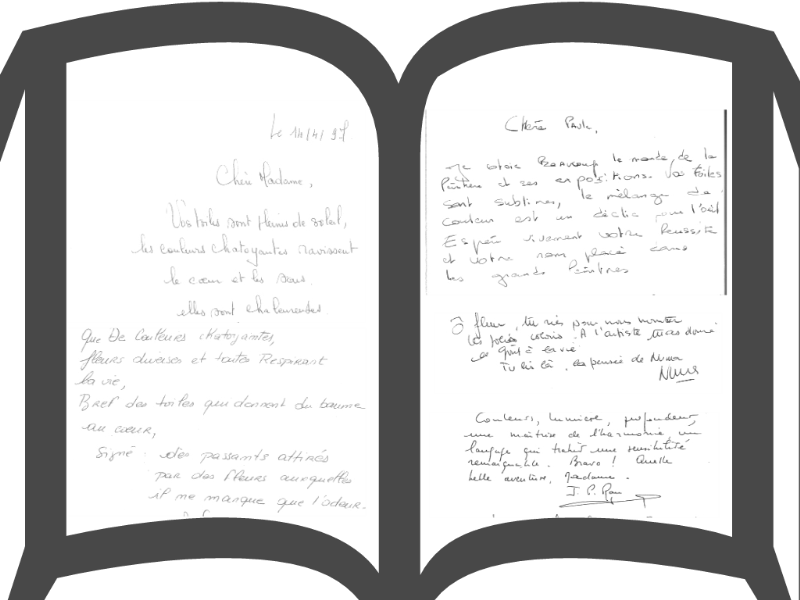 Le 14/4/97
Chère Madame,
Vos toiles sont pleines de soleil,
les couleurs chatoyantes ravissent
le cœur et les sens.
elles sont chaleureuses
Que de couleurs chatoyantes,
fleurs diverses et toutes Respirant
la vie,
Bref des toiles qui donnent du baume
au cœur,
Signé : des passants attirés
par des fleurs auxquelles
il ne manque que l'odeur.
Chère Paule,
Je adore BEAUCOUP le monde de la
Peinture et ses expositions. Vos toiles
sont sublimes, le mélange de
couleur est un déclic pour l'œil
Espère vivement votre Réussite
et votre nom placé dans
les grands Peintres
O fleur, tu nais pour nous montrer
les jolies coloris. A l'artiste tu as donné
le goût à la vie
Tu lis là, les pensée de
Couleurs, lumière, profondeur,
une maîtrise de l'harmonie, un
langage qui traduit une sensibilité
remarquable. Bravo ! Quelle
belle aventure, Madame.
J. P.